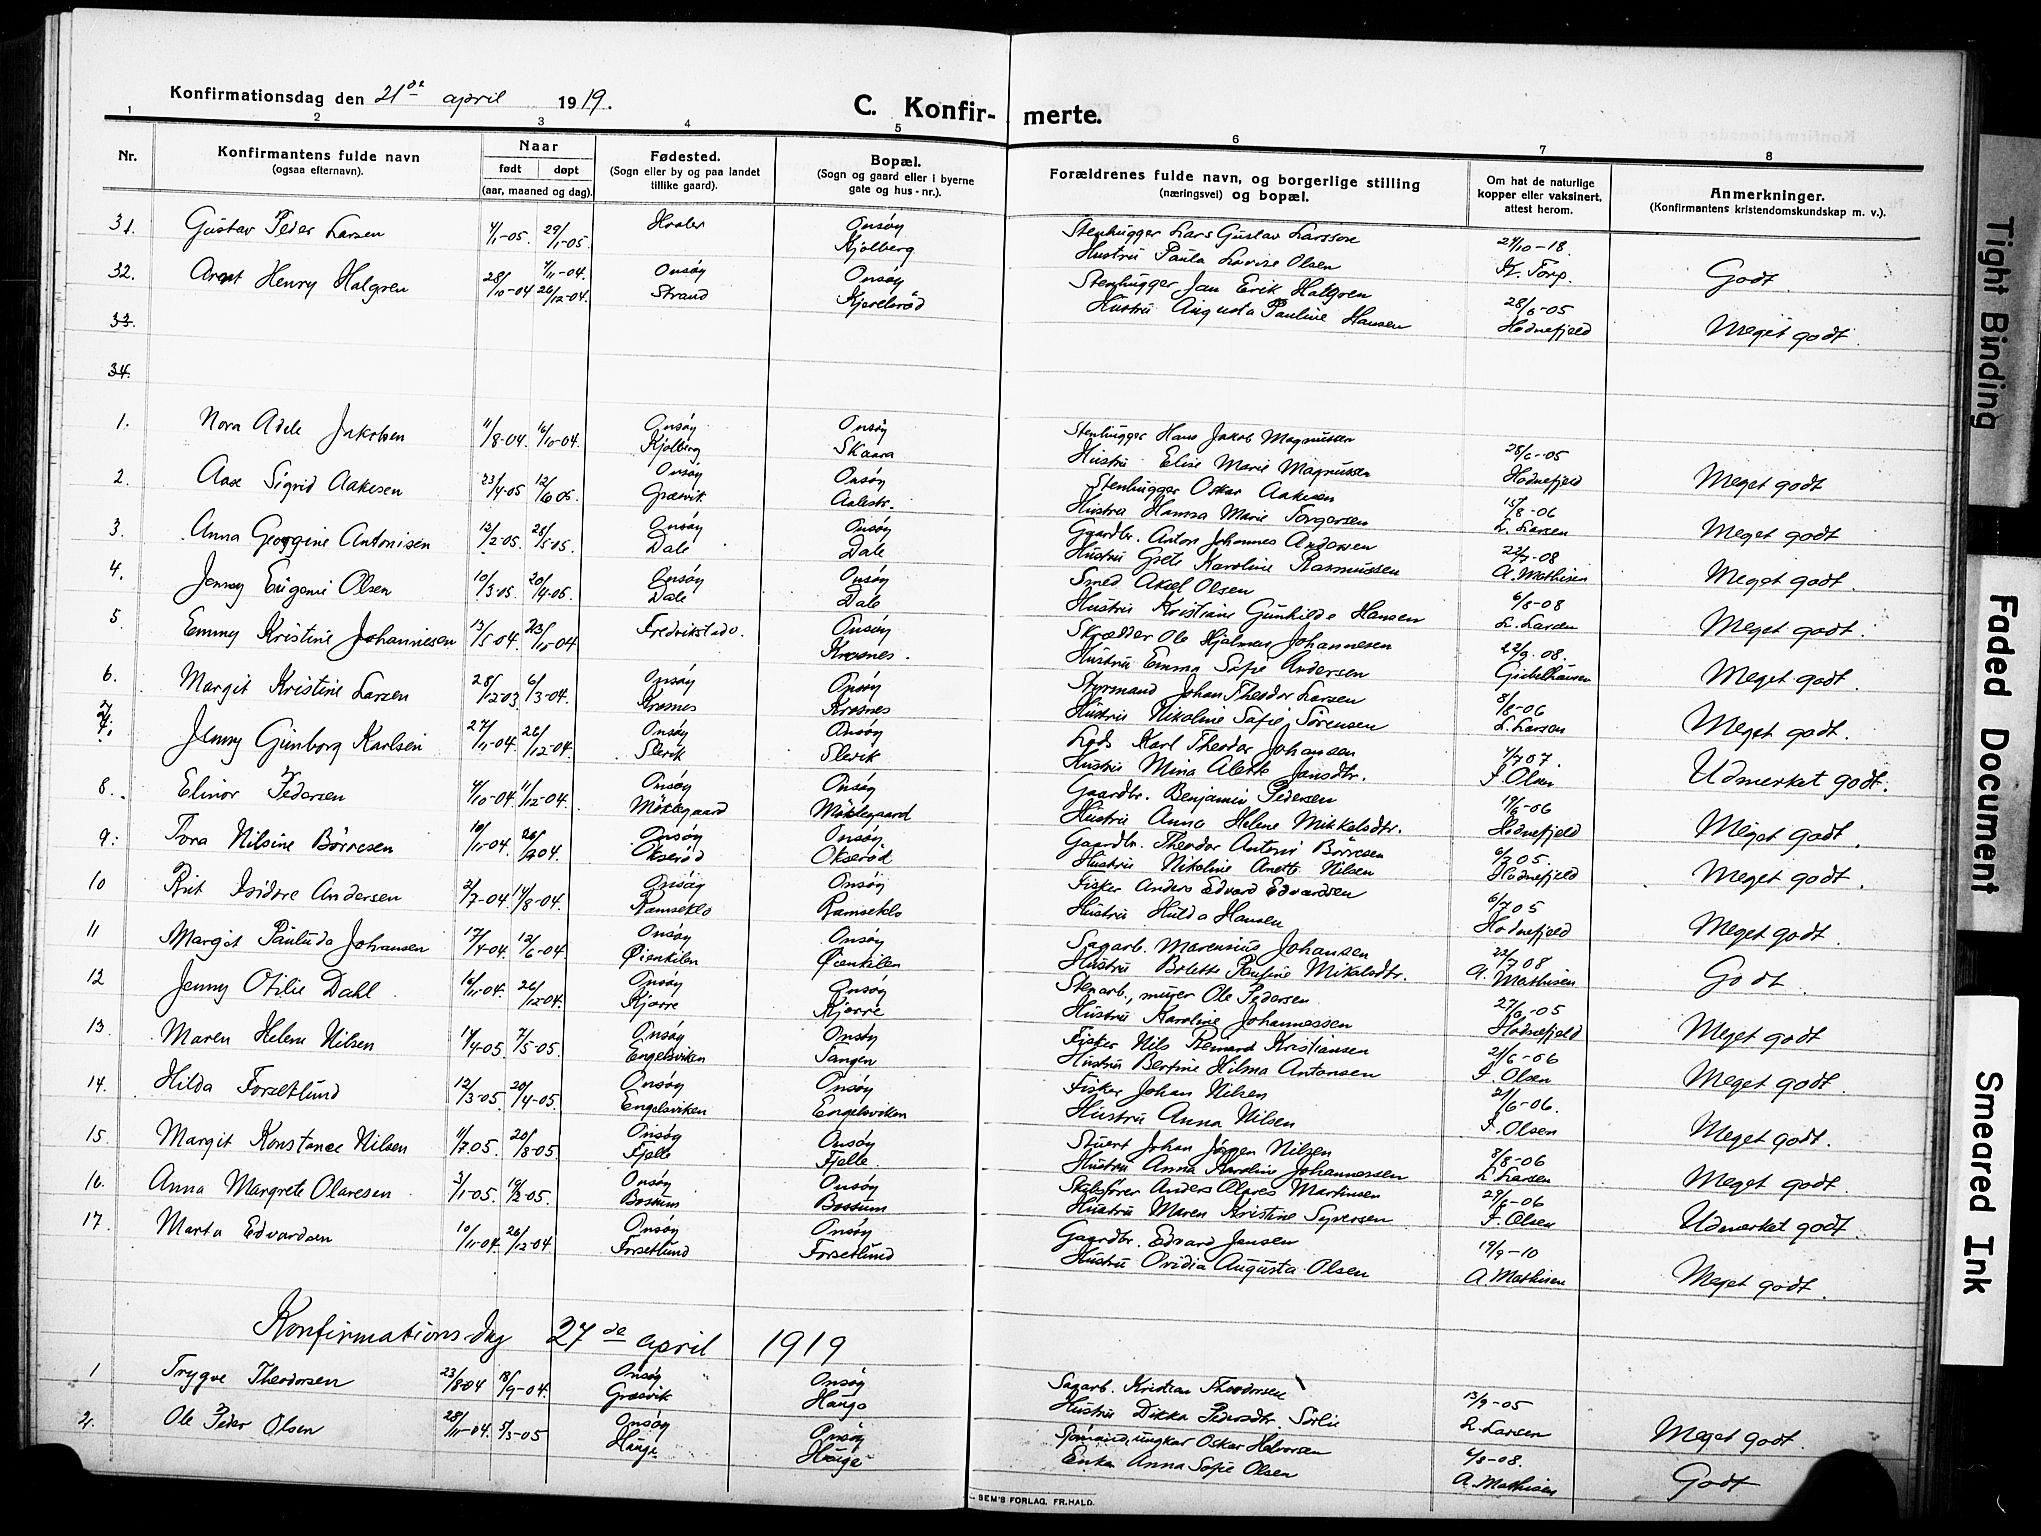 Konfirmationsdag den 21de april 1919.
C. Konfir- merte.
1 2 3 4 5 6 7 8
Nr.
Konfirmantens fulde navn
(ogsaa efternavn).
Naar
født døpt
(aar, maaned og dag).
Fødested.
(Sogn eller by og paa landet
tillike gaard).
Bopæl.
(Sogn og gaard eller i byerne
gate og hus-nr.).
Forældrenes fulde navn, og borgerlige stilling
(næringsvei) og bopæl.
Om hat de naturlige
kopper eller vaksinert,
attest herom.
Anmerkninger.
(Konfirmantens kristendomskundskap m. v.).
31. Gustav Peder Larsen 4/1-05. 29/1-05. Hvaler Onsøy Stenhugger Lars Gustav Larsson 24/10-18.
Kjølberg Hustru Paula Lovise Olsen K. Torp. Godt.
32. Arnt Henry Halgren 28/10-04 4/11-04. 26/12-04. Onsøy Onsøy Stenhugger Jan Erik Halgren 28/6-05
Strand Kjærelsrød Hustru Augusta Pauline Hansen Hodnefjeld Meget godt.
33.
34.
1. Nora Adele Jakobsen 11/8-04. 16/10-04. Onsøy Onsøy Stenhugger Hans Jakob Magnussen 28/6-05
Kjølberg Skaara Hustru Elise Marie Magnussen Hodnefjeld Meget godt
2. Aase Sigrid Aakesen 23/4-05 12/6 05. Onsøy Onsøy Stenhugger Oskar Aakesen 15/8-06
Græsvik Aalestr. Hustru Hanna Marie Torgersen L. Larsen Meget godt
3. Anna Georgine Antonisen 12/2-05. 28/5-05. Onsøy Onsøy Gaardbr. Anton Johannes Andersen 22/7-08
Dale Dale Hustru Grete Karoline Rasmussen A. Mathisen Meget godt.
4. Jenny Eugenie Olsen 10/3-05. 20/4-05. Onsøy Onsøy Smed Aksel Olsen 6/8-08
Dale Dale Hustru Kristiane Gunhilde Hansen L. Larsen Meget godt.
5. Emmy Kristine Johannesen 13/5-04. 23/10-04 Fredrikstad. Onsøy Skrædder Ole Hjalmar Johannesen 22/9-08.
Krosnes. Hustru Emma Sofie Andersen Gichelhausen Meget godt.
6. Margit Kristine Larsen 28/12-03 6/3-04. Onsøy Onsøy Styrmand Johan Theodor Larsen 8/8-06
Krosnes Krosnes Hustru Nikoline Sofie Sörensen L. Larsen Meget godt.
7. Jenny Gunborg Karlsen 27/11-04. 26/12-04. Onsøy Onsøy Lods Karl Theodor Johansen 4/7 07.
Slevik Slevik Hustru Mina Alette Jansdtr. F. Olsen Udmerket godt.
8. Elinor Pedersen 4/10-04. 11/12-04. Onsøy Onsøy Gaardbr. Benjamin Pedersen 19/6-06
Möklegaard Möklegaard Hustru Anna Helene Mikkelsdtr. Hodnefjeld Meget godt.
9. Tora Nilsine Börresen 10/11-04. 26/12 04. Onsøy Onsøy Gaardbr. Theodor Antoni Börresen 6/7 05.
Okserød Okserød Hustru Nikoline Anette Nilsen Hodnefjeld Meget godt.
10 Rut Isidore Andersen 2/7-04 14/8-04. Onsøy Onsøy Fisker Anders Edvard Edvardsen 6/7 05
Ramseklo Ramseklo Hustru Hulda Hansen Hodnefjeld Meget godt.
11 Margit Paulida Johansen 17/4-04. 12/6-04 Onsøy Onsøy Sagarb. Marensius Johansen 22/7 08
Øienkilen Øienkilen Hustru Bolette Pauline Mikelsdtr. A. Mathisen Godt.
12 Jenny Otilie Dahl 16/11-04. 26/12-04. Onsøy Onsøy Stenarb., murer Ole Pedersen 27/6-05
Kjærre Kjærre Hustru Karoline Johannessen Hodnefjeld Meget godt
13. Maren Helene Nilsen 14/4-05 7/5-05. Onsøy Onsøy Fisker Nils Bernard Kristiansen 21/6-06
Engelsviken Tangen Hustru Bertine Hilma Antonsen F. Olsen Meget godt.
14. Hilda Forsetlund 12/3-05. 20/4-05. Onsøy Onsøy Fisker Johan Nilsen 21/6-06.
Engelsviken Engelsviken Hustru Anna Nilsen F. Olsen Meget godt.
15. Margit Konstance Nilsen 11/7 05. 20/8-05. Onsøy Onsøy Stuert Johan Jørgen Nilsen 8/8-06
Fjelle Fjelle. Hustru Anna Karoline Johannessen L. Larsen Meget godt.
16. Anna Margrete Olavesen 3/1-05. 19/3-05. Onsøy Onsøy Skibsfører Anders Olaves Martinsen 29/6-06
Bossum Bossum Hustru Maren Kristine Syversen F. Olsen Udmerket godt.
17. Marta Edvardsen 10/11-04. 26/12-04 Onsøy Onsøy Gaardbr. Edvard Jensen 19/9-10
Forsetlund Forsetlund Hustru Ovidia Augusta Olsen A Mathisen Meget godt.
Konfirmationsdag 27de april 1919
1 Trygve Theodorsen 23/8-04 18/9-04. Onsøy Onsøy Sagarb. Kristian Theodorsen 13/9-05
Græsvik Hauge Hustru Dikka Pedersdtr. Sørlie L. Larsen Meget godt.
2. Ole Peder Olsen 28/11-04. 5/3-05 Onsøy Onsøy Sjømand, ungkar Oskar Halvorsen 6/8-08.
Hauge Hauge Enke Anna Sofie Olsen A. Mathisen Godt
SEM'S FORLAG. FR.HALD.
Tight Binding
Faded Document
Smeared Ink